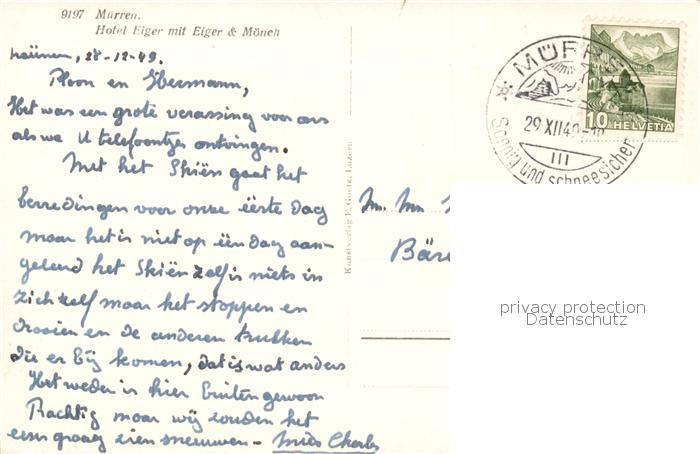 9197 Mürren.
Hotel Eiger mit Eiger & Mönch
28-12-49.
Ploon en Hermann,
Het was een grote verassing voor ons
als we U telefoontje ontvingen.
Met het Skiën gaat het
berredingen voor onze éérste dag
maar het is niet op één dag aan-
geleerd het Skiën zelf is niets in
zich zelf maar het stoppen en
draaien en de anderen trukken
die er bij komen, dat is wat anders
Het weder is hier buitengewoon
Prachtig maar wij zouden het
eens graag zien sneeuwen -
Kunstverlag E. Goetz, Luzern
MÜRREN
29.XII.49
III
Sonnig und schneesicher
10 HELVETIA
Bäre
privacy protection
Datenschutz